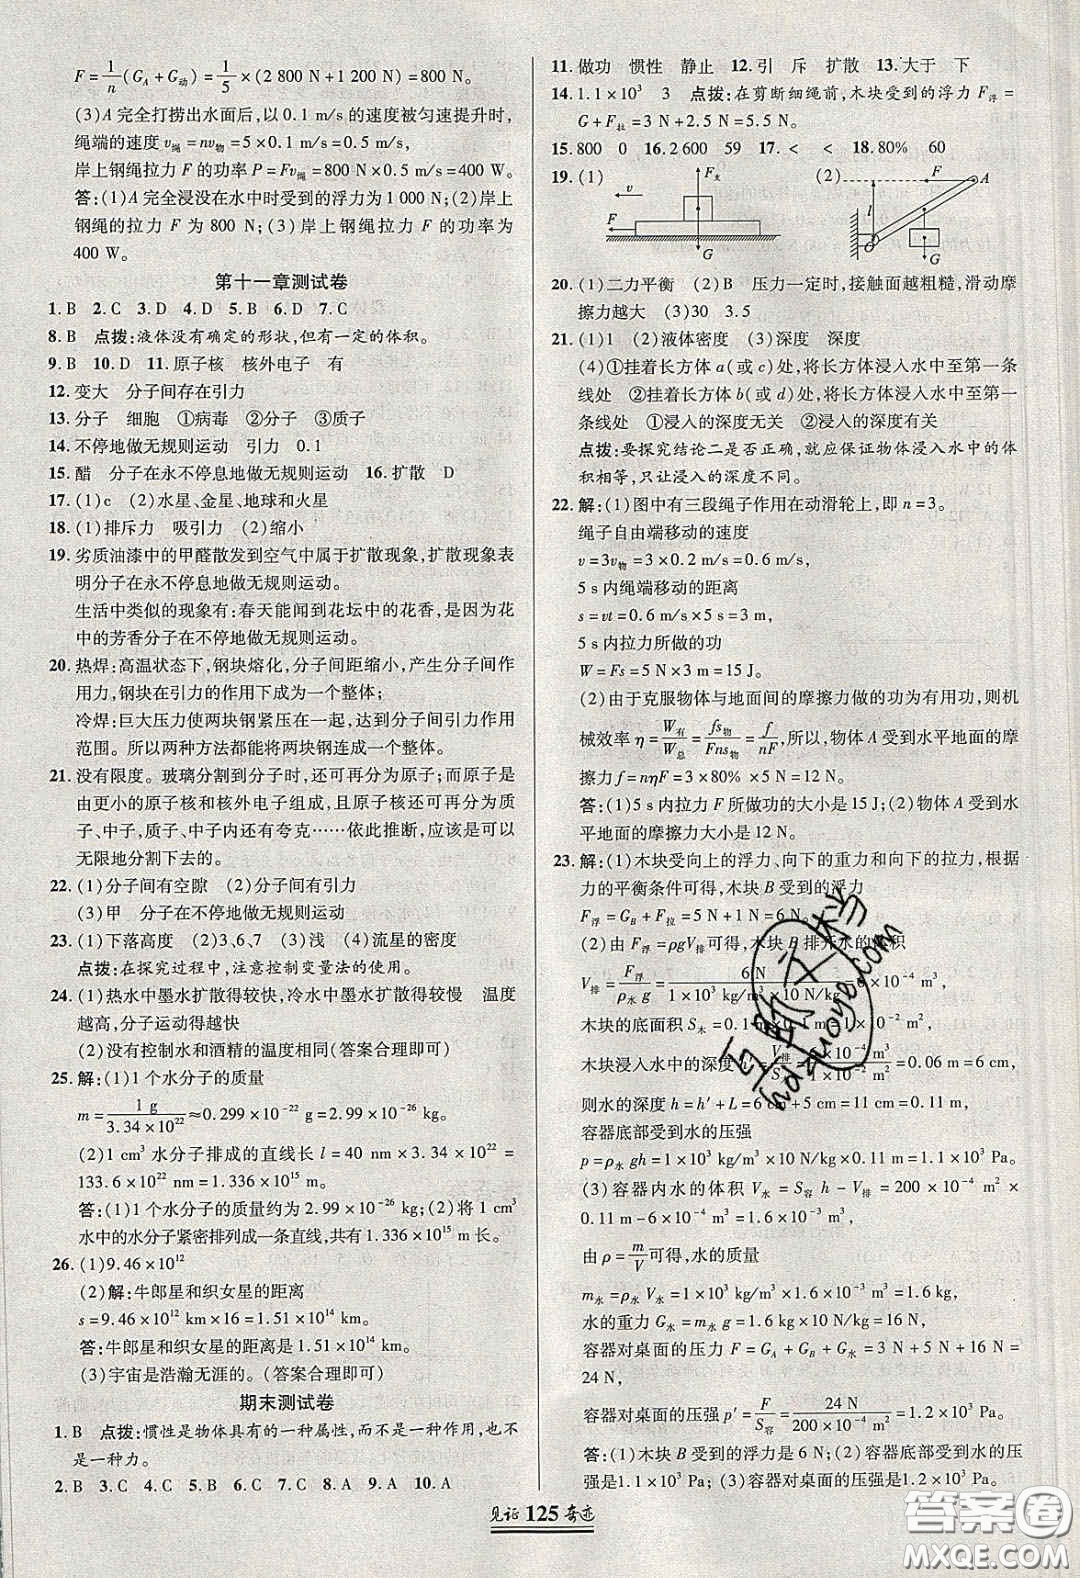 F=1/n(G_A+G_动)=1/5×(2 800 N+1 200 N)=800 N。
(3)A完全打捞出水面后,以0.1 m/s的速度被匀速提升时,
绳端的速度v_绳=nv_物=5×0.1 m/s=0.5 m/s,
岸上钢绳拉力F的功率P=Fv_绳=800 N×0.5 m/s=400 W。
答:(1)A完全浸没在水中时受到的浮力为1 000 N;(2)岸上
钢绳的拉力F为800 N;(3)岸上钢绳拉力F的功率为
400 W。
第十一章测试卷
1. B 2. C 3. D 4. D 5. B 6. D 7. C
8. B 点拨:液体没有确定的形状,但有一定的体积。
9. B 10. D 11. 原子核 核外电子 有
12. 变大 分子间存在引力
13. 分子 细胞 ①病毒 ②分子 ③质子
14. 不停地做无规则运动 引力 0.1
15. 醋 分子在永不停息地做无规则运动 16. 扩散 D
17. (1)c (2)水星、金星、地球和火星
18. (1)排斥力 吸引力 (2)缩小
19. 劣质油漆中的甲醛散发到空气中属于扩散现象,扩散现象表
明分子在永不停息地做无规则运动。
生活中类似的现象有:春天能闻到花坛中的花香,是因为花
中的芳香分子在不停地做无规则运动。
20. 热焊:高温状态下,钢块熔化,分子间距缩小,产生分子间作
用力,钢块在引力的作用下成为一个整体;
冷焊:巨大压力使两块钢紧压在一起,达到分子间引力作用
范围。所以两种方法都能将两块钢连成一个整体。
21. 没有限度。玻璃分割到分子时,还可再分为原子;而原子是
由更小的原子核和核外电子组成,且原子核还可再分为质
子、中子,质子、中子内还有夸克……依此推断,应该是可以
无限地分割下去的。
22. (1)分子间有空隙 (2)分子间有引力
(3)甲 分子在不停地做无规则运动
23. (1)下落高度 (2)3、6、7 (3)浅 (4)流星的密度
点拨:在探究过程中,注意控制变量法的使用。
24. (1)热水中墨水扩散得较快,冷水中墨水扩散得较慢 温度
越高,分子运动得越快
(2)没有控制水和酒精的温度相同(答案合理即可)
25. 解:(1)1个水分子的质量
m=1 g/3.34×10²²≈0.299×10⁻²² g=2.99×10⁻²⁶ kg。
(2)1 cm³ 水分子排成的直线长 l=40 nm×3.34×10²²=
133.6×10²² nm=1.336×10¹⁵ m。
答:(1)1个水分子的质量约为2.99×10⁻²⁶ kg;(2)将1 cm³
水中的水分子紧密排列成一条直线,共有1.336×10¹⁵ m长。
26. (1)9.46×10¹²
(2)解:牛郎星和织女星的距离
s=9.46×10¹² km×16=1.51×10¹⁴ km。
答:牛郎星和织女星的距离是1.51×10¹⁴ km。
(3)宇宙是浩瀚无涯的。(答案合理即可)
期末测试卷
1. B 点拨:惯性是物体具有的一种属性,而不是一种作用,也不
是一种力。
2. B 3. C 4. D 5. C 6. B 7. C 8. A 9. A 10. A
11. 做功 惯性 静止 12. 引 斥 扩散 13. 大于 下
14. 1.1×10³ 3 点拨:在剪断细绳前,木块受到的浮力F_浮=
G+F_拉=3 N+2.5 N=5.5 N。
15. 800 0 16. 2 600 59 17. < < 18. 80% 60
19. (1) v F F_支 G (2) F A l O G
20. (1)二力平衡 (2)B 压力一定时,接触面越粗糙,滑动摩
擦力越大 (3)30 3.5
21. (1)1 (2)液体密度 (3)深度 深度
(4)①挂着长方体a(或c)处,将长方体浸入水中至第一条
线处 ②挂着长方体b(或d)处,将长方体浸入水中至第一
条线处 ①浸入的深度无关 ②浸入的深度有关
点拨:要探究结论二是否正确,就应保证物体浸入水中的体
积相等,只让浸入的深度不同。
22. 解:(1)图中有三段绳子作用在动滑轮上,即n=3。
绳子自由端移动的速度
v=3v_物=3×0.2 m/s=0.6 m/s,
5 s内绳端移动的距离
s=vt=0.6 m/s×5 s=3 m,
5 s内拉力所做的功
W=Fs=5 N×3 m=15 J。
(2)由于克服物体与地面间的摩擦力做的功为有用功,则机
械效率η=W_有/W_总=fs_物/Fns_物=f/nF,所以,物体A受到水平地面的摩
擦力f=nηF=3×80% ×5 N=12 N。
答:(1)5 s内拉力F所做功的大小是15 J;(2)物体A受到水
平地面的摩擦力大小是12 N。
23. 解:(1)木块受向上的浮力、向下的重力和向下的拉力,根据
力的平衡条件可得,木块B受到的浮力
F_浮=G_B+F_拉=5 N+1 N=6 N。
(2)由F_浮=ρgV_排可得,木块B排开水的体积
V_排=F_浮/ρ_水 g=6 N/1×10³ kg/m³×10 N/kg=6×10⁻⁴ m³,
木块的底面积S_木=0.1 m×0.1 m=1×10⁻² m²,
木块浸入水中的深度h′=V_排/S_木=6×10⁻⁴ m³/1×10⁻² m²=0.06 m=6 cm,
则水的深度h=h′+L=6 cm+5 cm=11 cm=0.11 m,
容器底部受到水的压强
p=ρ_水 gh=1×10³ kg/m³×10 N/kg×0.11 m=1.1×10³ Pa。
(3)容器内水的体积V_水=S_容 h-V_排=200×10⁻⁴ m²×
0.11 m-6×10⁻⁴ m³=1.6×10⁻³ m³,
由ρ=m/V可得,水的质量
m_水=ρ_水 V_水=1×10³ kg/m³×1.6×10⁻³ m³=1.6 kg,
水的重力G_水=m_水 g=1.6 kg×10 N/kg=16 N,
容器对桌面的压力F=G_A+G_B+G_水=3 N+5 N+16 N=
24 N,
容器对桌面的压强p′=F/S_容=24 N/200×10⁻⁴ m²=1.2×10³ Pa。
答:(1)木块B受到的浮力是6 N;(2)容器底部受到水的压
强是1.1×10³ Pa;(3)容器对桌面的压强是1.2×10³ Pa。
见证 125 奇迹
hdzuoye.com
答案圈
MXQE.COM